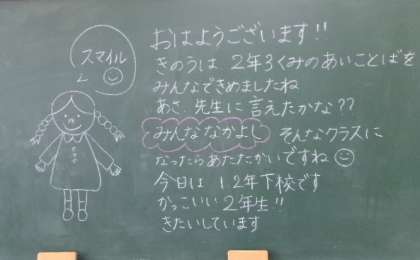 スマイル
おはようございます!!
きのうは 2年3くみのあいことばを
みんなできめましたね
あさ、先生に言えたかな??
みんななかよし そんなクラスに
なったらあたたかいですね
今日は 1 2年下校です
かっこいい2年生!!
きたいしています